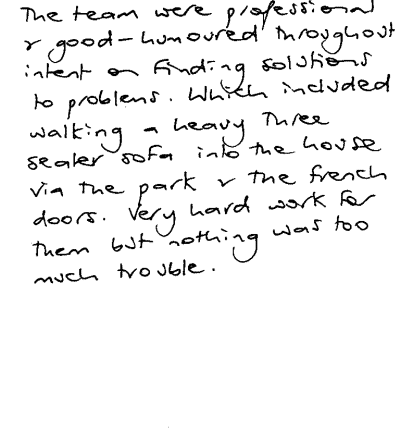 The team were professional
& good-humoured throughout
intent on finding solutions
to problems. Which included
walking a heavy three
seater sofa into the house
via the park & the french
doors. Very hard work for
them but nothing was too
much trouble.